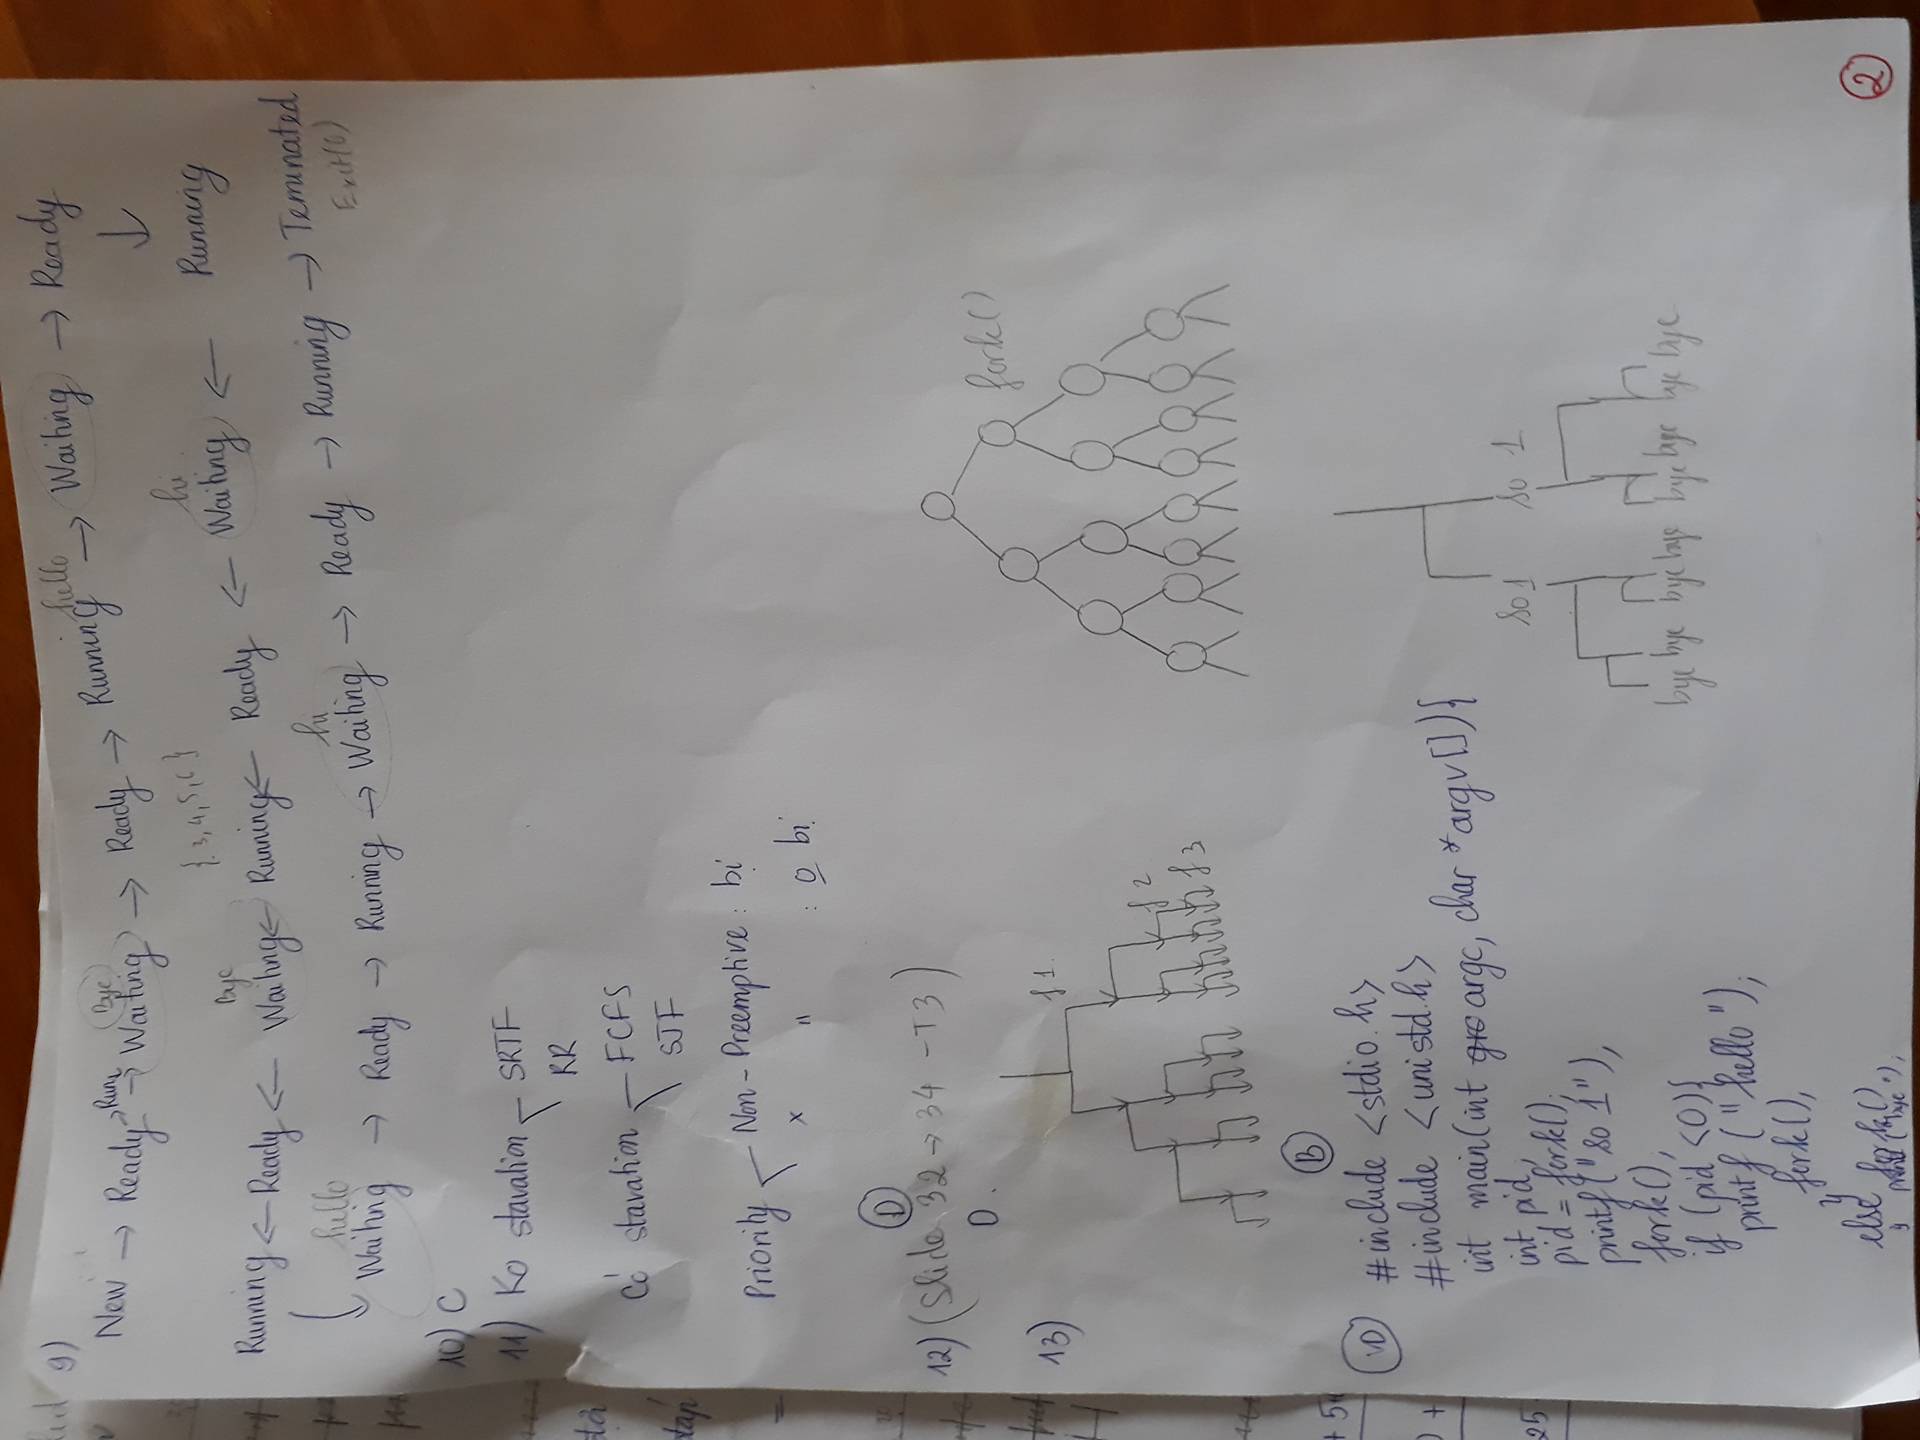 9)
New → Ready → Rung → Waiting → Ready → Running → Waiting → Ready
Bye
hello
↓
{ 3, 4, 5, 6 }
Bye
hi
Running ← Ready ← Waiting ← Running ← Ready ← Waiting ← Running
↓
hello
hi
Waiting → Ready → Running → Waiting → Ready → Running → Teminated
Exit(0)
10) C
11) Ko stavation
SRTF
RR
Có stavation
FCFS
SJF
Priority
Non - Preemptive : bị
x " : o bị
D
12) (Slide 32 → 34 - T3)
D.
13)
f1.
f2
f3
fork()
B
VD
#include <stdio.h>
#include <unistd.h>
int main(int argc, char *argv[]){
int pid;
pid = fork();
printf("so 1");
fork();
if (pid <0){
printf ("hello");
fork();
}
else fork()
printf ("bye");
}
so 1 so 1
bye bye bye bye bye bye bye bye
2
+ 5
) +
25